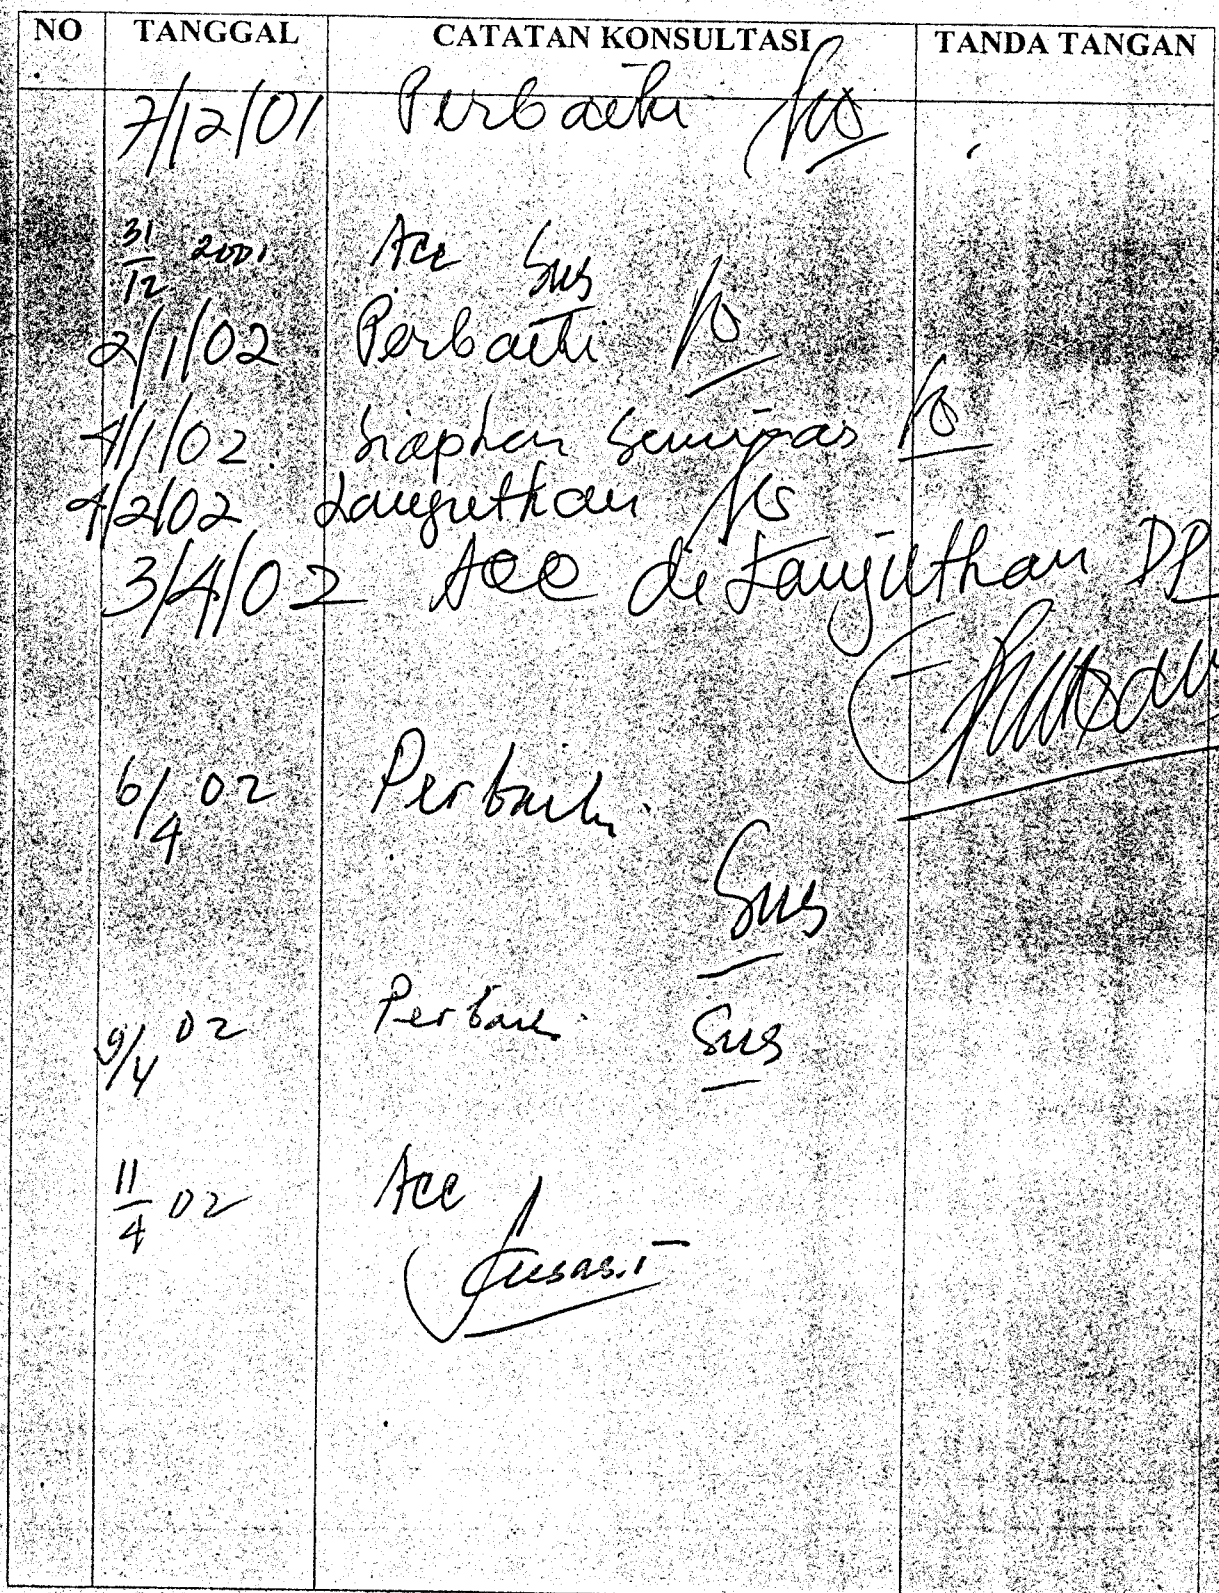 NO TANGGAL CATATAN KONSULTASI TANDA TANGAN
7/12/01 Perbaiki
31/12 2001 Acc Sus
2/1/02 Perbaiki
4/1/02. Siapkan Seminar
4/2/02 Lanjutkan
3/4/02 Acc di Lanjutkan DP
6/4 02 Perbaiki
Sus
9/4 02 Perbaiki Sus
11/4 02 Acc